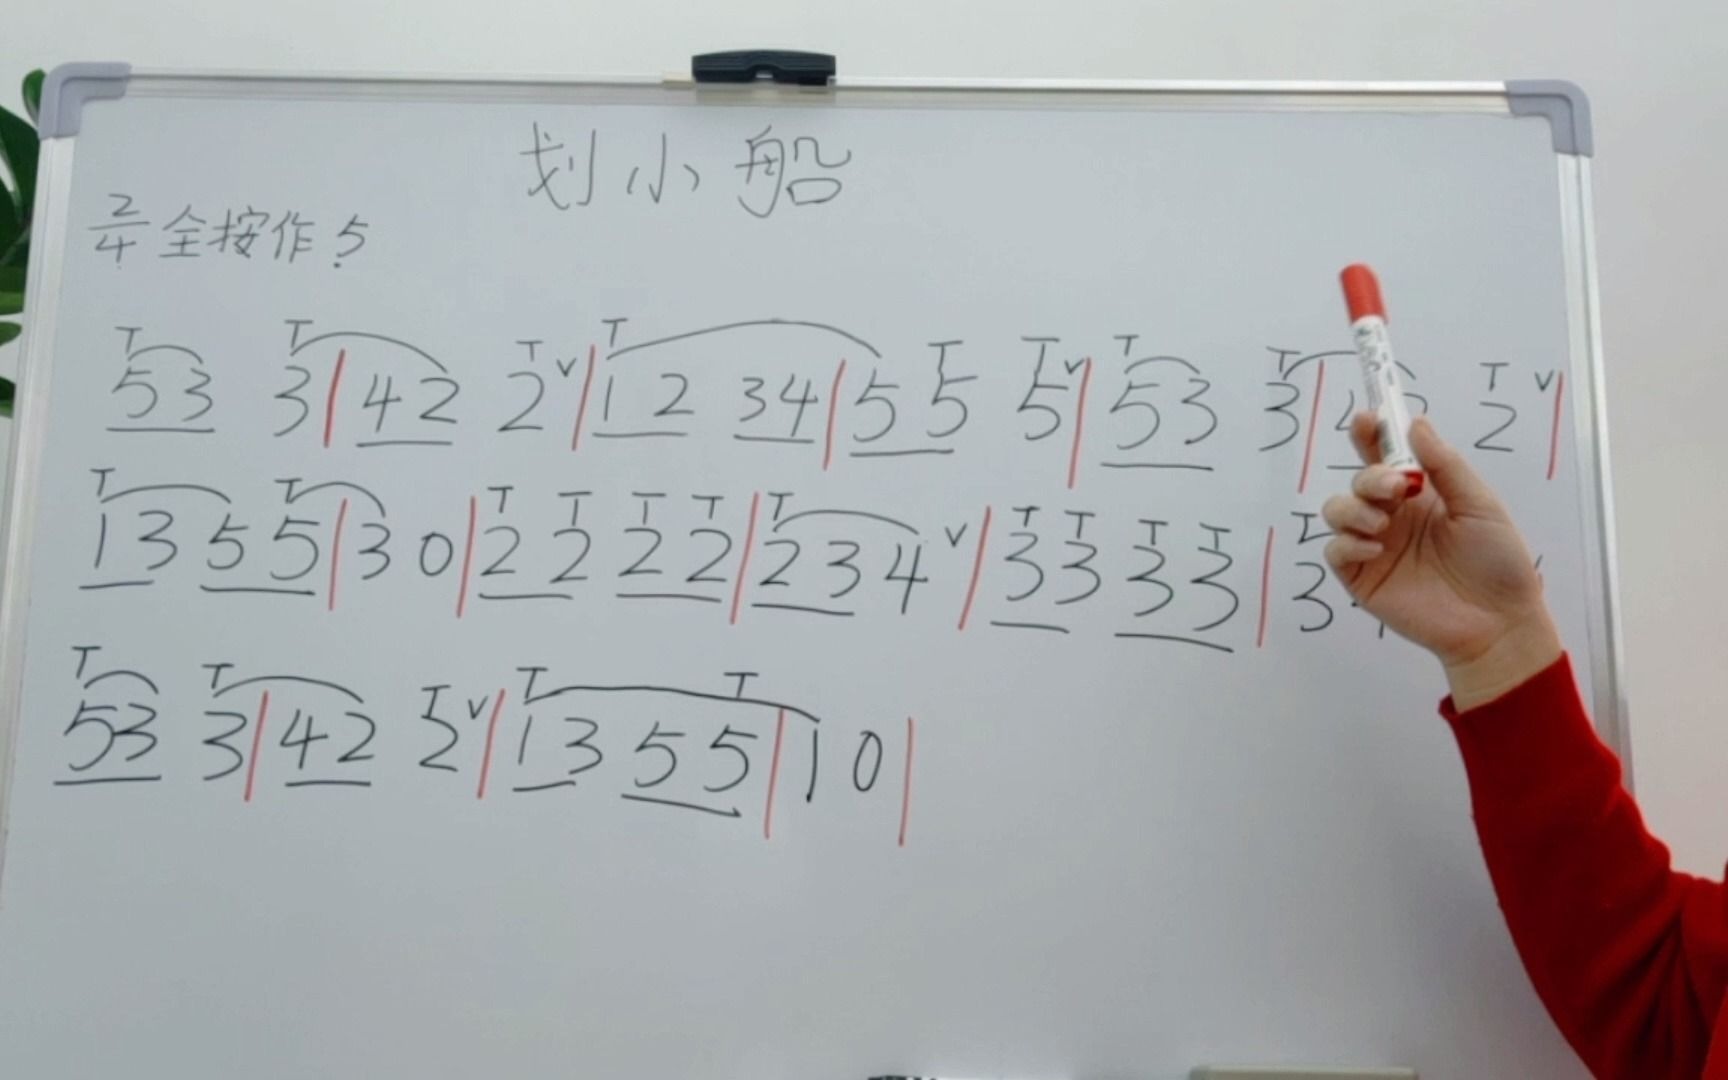 划小船
2/4 全按作5̣
T T T T T T T T T
53 3|42 2 v|12 34|55 5 v|53 3|4 2 v|
T T T T T T T T T T T T
13 55|30|22 22|234 v|33 33|3
T T T T T
53 3|42 2 v|13 55|10|